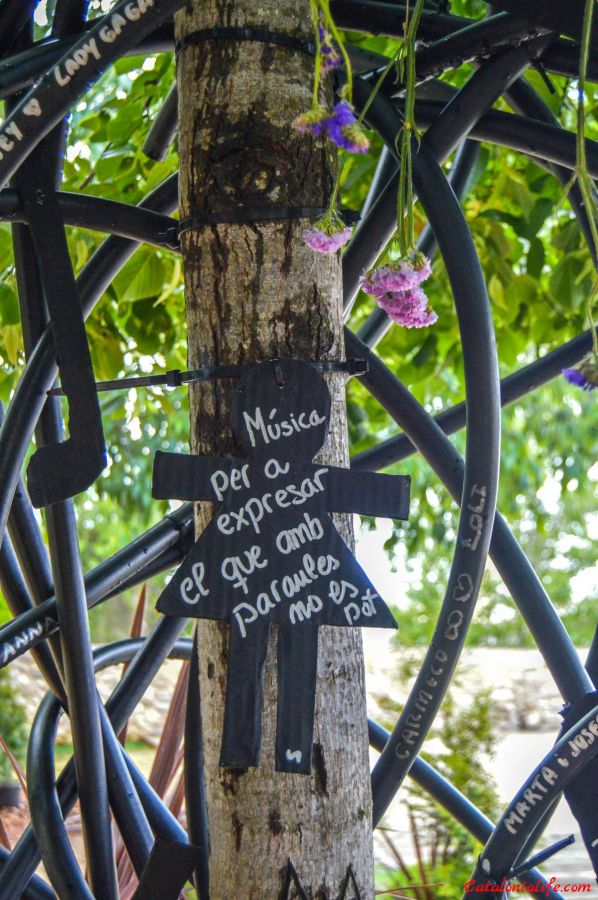 LADY GAGA
Música
per a
expresar
el que amb
paraules
no es
pot
ANNA
CARMELO LOLI
MARTA i JOSEP
Catalonialife.com